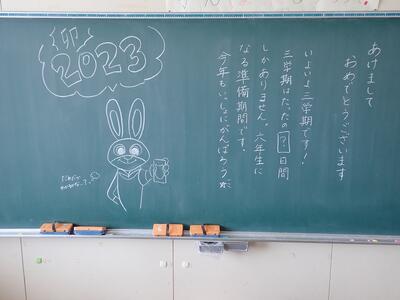 卯
2023
あけまして
おめでとうございます
いよいよ三学期です!
三学期はたったの?日間
しかありません。六年生に
なる準備期間です。
今年もいっしょにがんばろうね